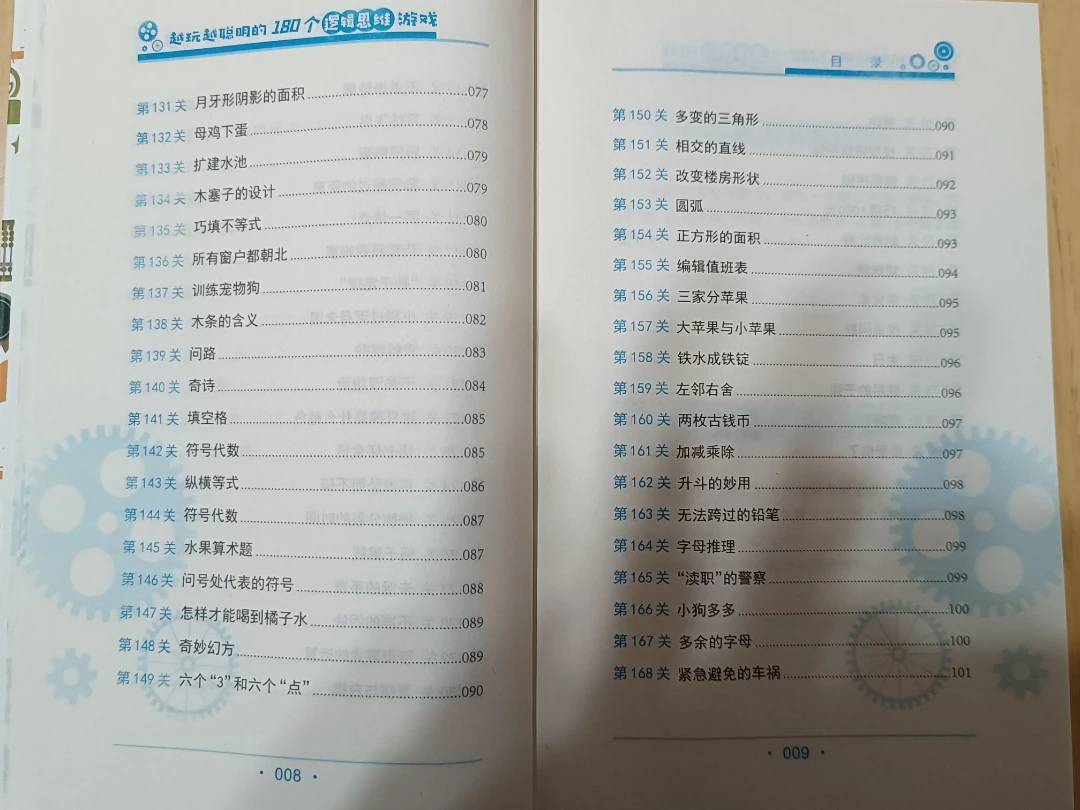 越玩越聪明的180个逻辑思维游戏
第131关 月牙形阴影的面积 077
第132关 母鸡下蛋 078
第133关 扩建水池 079
第134关 木塞子的设计 079
第135关 巧填不等式 080
第136关 所有窗户都朝北 080
第137关 训练宠物狗 081
第138关 木条的含义 082
第139关 问路 083
第140关 奇诗 084
第141关 填空格 085
第142关 符号代数 085
第143关 纵横等式 086
第144关 符号代数 087
第145关 水果算术题 087
第146关 问号处代表的符号 088
第147关 怎样才能喝到橘子水 089
第148关 奇妙幻方 089
第149关 六个“3”和六个“点” 090
· 008 ·
目 录
第150关 多变的三角形 090
第151关 相交的直线 091
第152关 改变楼房形状 092
第153关 圆弧 093
第154关 正方形的面积 093
第155关 编辑值班表 094
第156关 三家分苹果 095
第157关 大苹果与小苹果 095
第158关 铁水成铁锭 096
第159关 左邻右舍 096
第160关 两枚古钱币 097
第161关 加减乘除 097
第162关 升斗的妙用 098
第163关 无法跨过的铅笔 098
第164关 字母推理 099
第165关 “渎职”的警察 099
第166关 小狗多多 100
第167关 多余的字母 100
第168关 紧急避免的车祸 101
· 009 ·